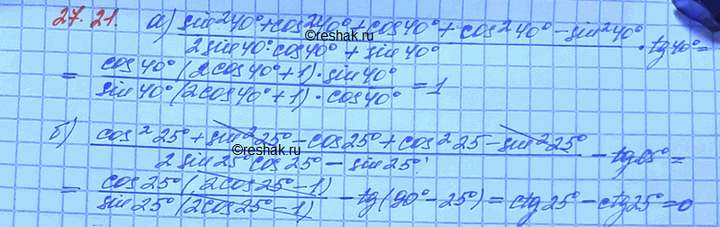 27.21. а) sin²40°+cos²40°+cos40°+cos²40°-sin²40°
2sin40°·cos40°+sin40° · tg40°=
= cos40°(2cos40°+1)·sin40°
sin40°(2cos40°+1)·cos40° =1
б) cos²25°+sin²25°-cos25°+cos²25-sin²25°
2sin25°cos25°-sin25° - tg65°=
= cos25°(2cos25°-1)
sin25°(2cos25°-1) - tg(90°-25°)=ctg25°-ctg25°=0